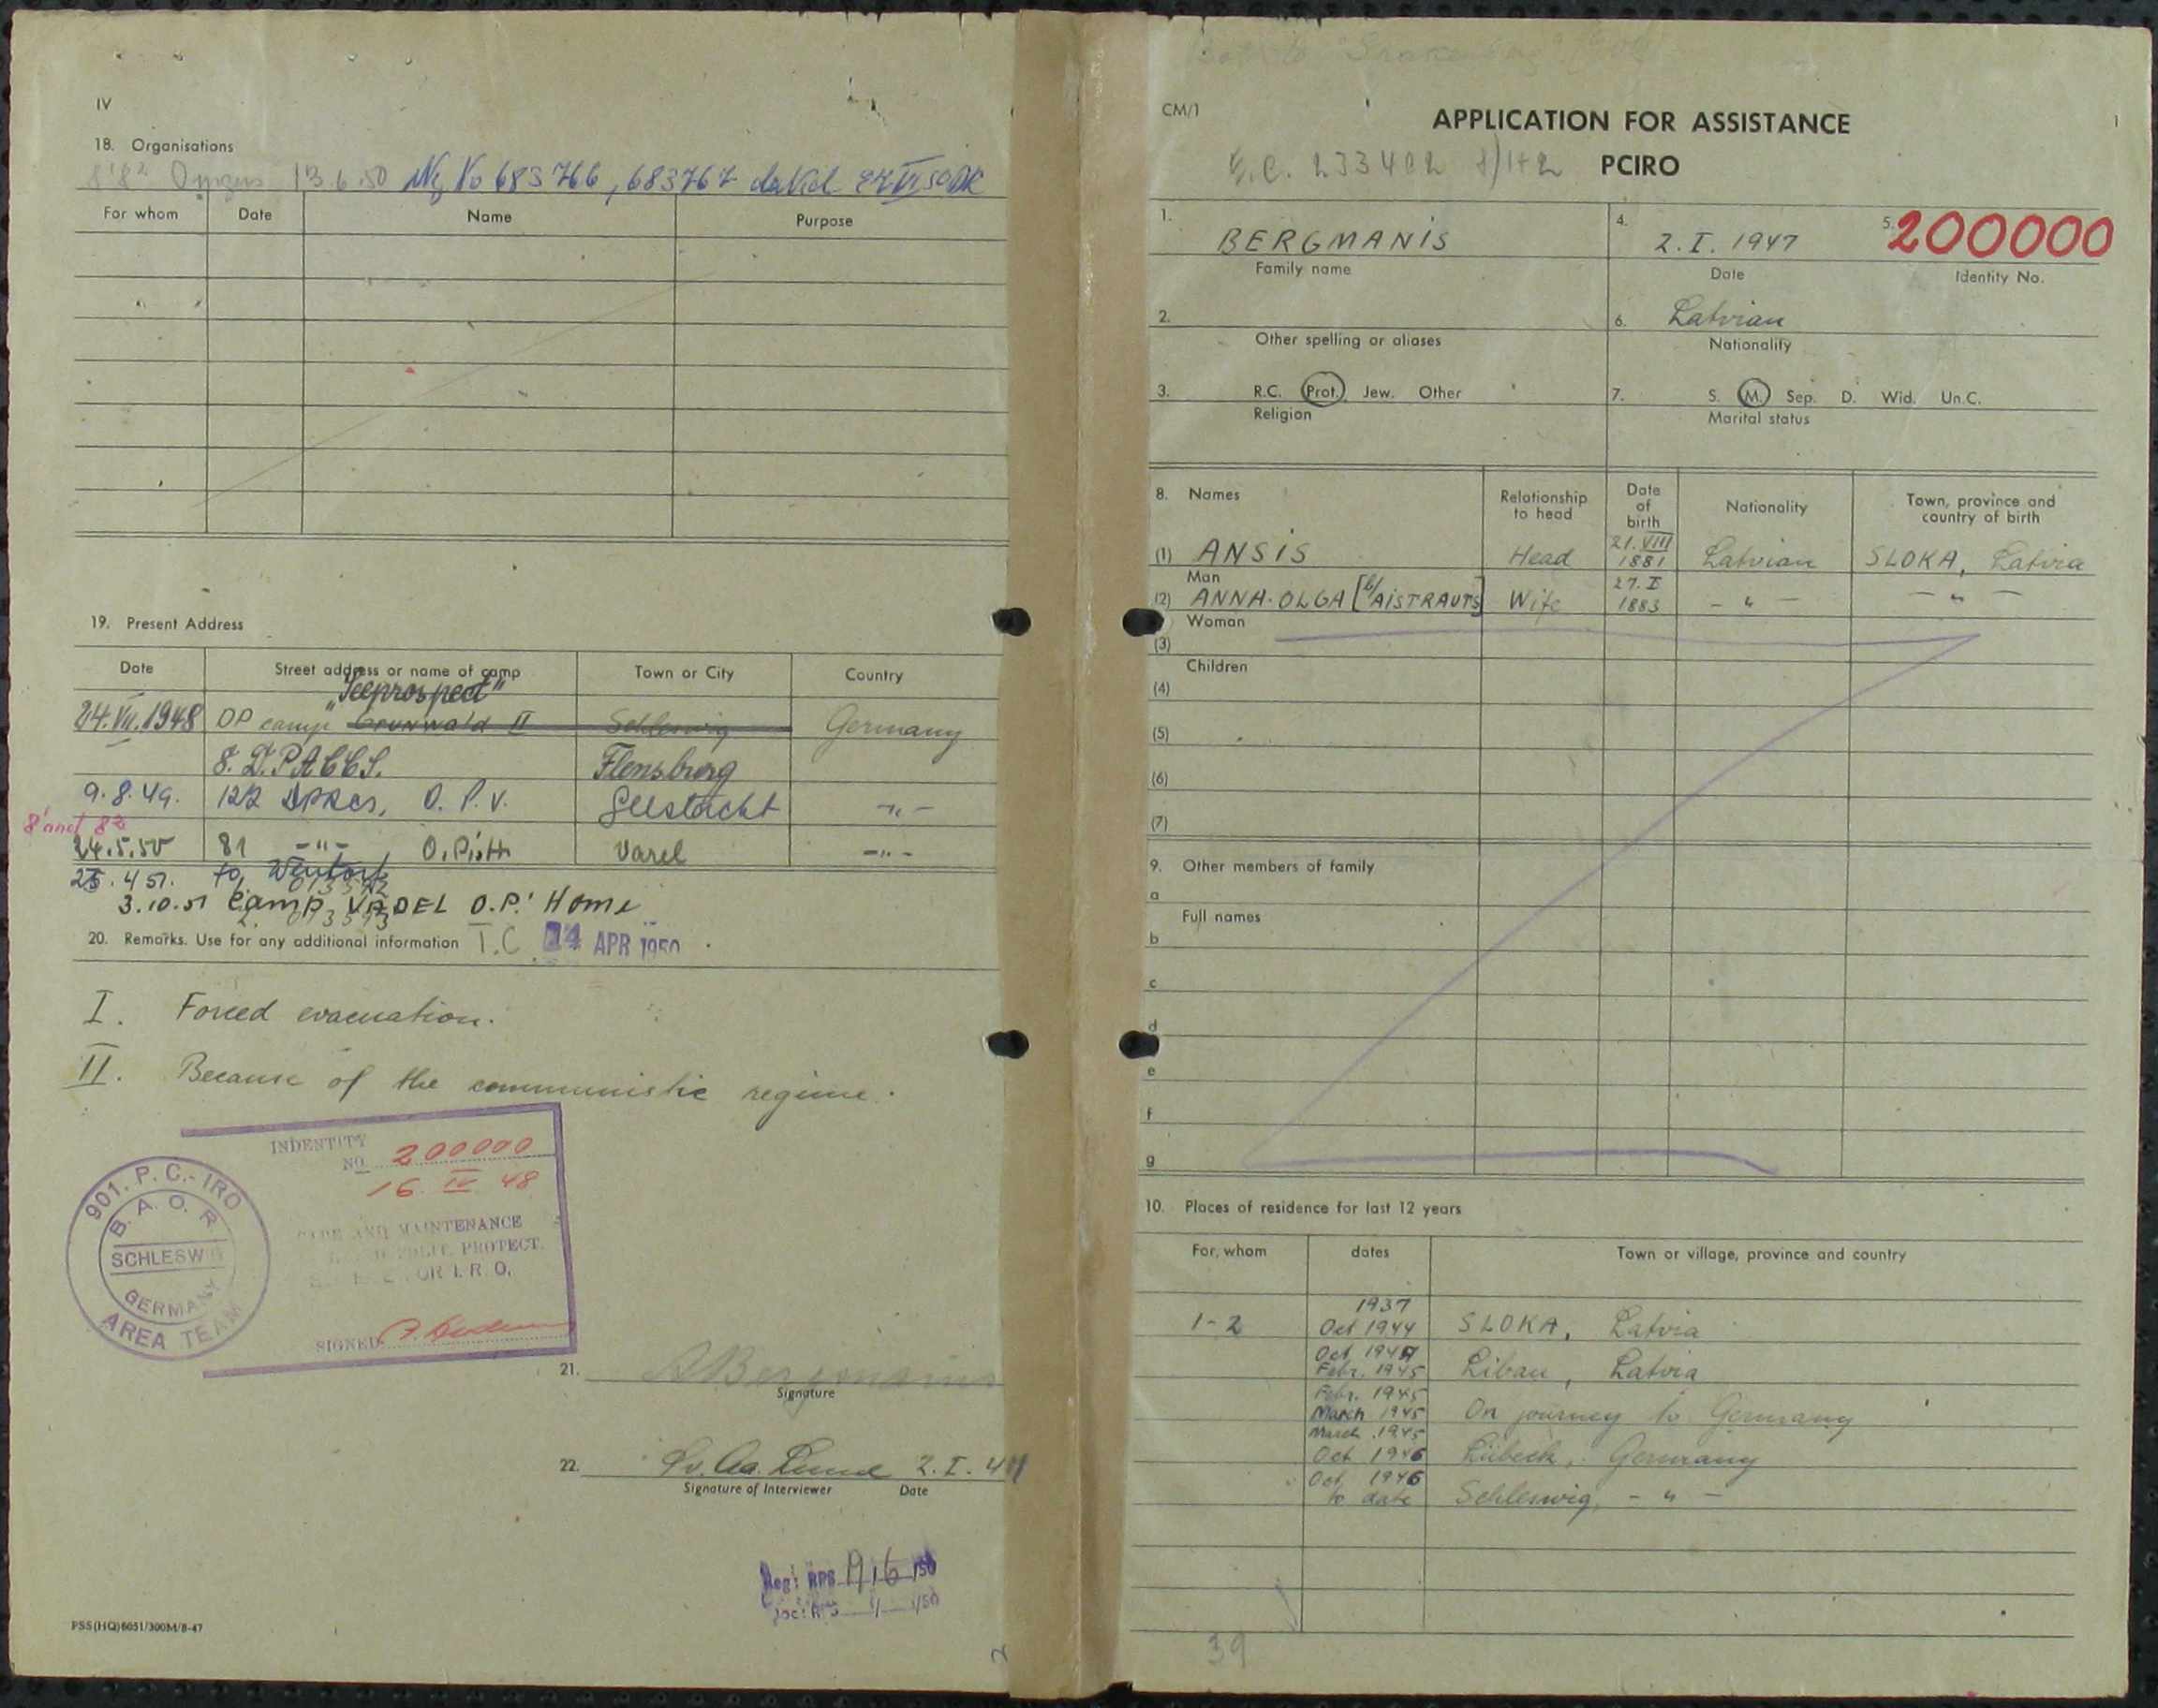 IV
18. Organisations
13.6.50 No 683766, 683767
For whom Date Name Purpose
19. Present Address
Date Street address or name of camp Town or City Country
"Seeprospect"
24.VII.1948 DP camp Grunwald II Schleswig Germany
Flensburg
9.8.49. 122 DPACS, O.P.V. Geestacht -"-
8'and 82
24.5.50 81 -"- Varel -"-
25.4 51. to Wentorf
3.10.51 Camp VAREL O.P.' Home
20. Remarks. Use for any additional information T.C. 24 APR 1950
I. Forced evacuation.
II. Because of the communistic regime.
INDENTITY
NO 200000
16. IV. 48
CARE AND MAINTENANCE
PROTECT.
FOR I. R. O.
SIGNED
901. P. C.-IRO
B. A. O. R
SCHLESWIG
GERMANY
AREA TEAM
21. ABergmanis
Signature
22. 2.I.48
Signature of Interviewer Date
PSS(HQ)6051/300M/8-47
CM/1 APPLICATION FOR ASSISTANCE I
233402 PCIRO
1. BERGMANIS
Family name
4. 2.I.1947
Date
5. 200000
Identity No.
2.
Other spelling or aliases
6. Latvian
Nationality
3. R.C. Prot. Jew. Other
Religion
7. S. M. Sep. D. Wid. Un.C.
Marital status
8. Names Relationship to head Date of birth Nationality Town, province and country of birth
(1) ANSIS Head 21.VIII 1881 Latvian SLOKA, Latvia
Man
(2) ANNA-OLGA [b/AISTRAUTS] Wife 27.I 1883 - " - - " -
Woman
(3)
Children
(4)
(5)
(6)
(7)
9. Other members of family
a
Full names
b
c
d
e
f
g
10. Places of residence for last 12 years
For whom dates Town or village, province and country
1-2 1937 Oct 1944 SLOKA, Latvia
Oct 1944 Febr. 1945 Libau, Latvia
Febr. 1945 March 1945 On journey to Germany
March 1945 Oct 1946 Lübeck, Germany
Oct 1946 to date Schleswig, - " -
39